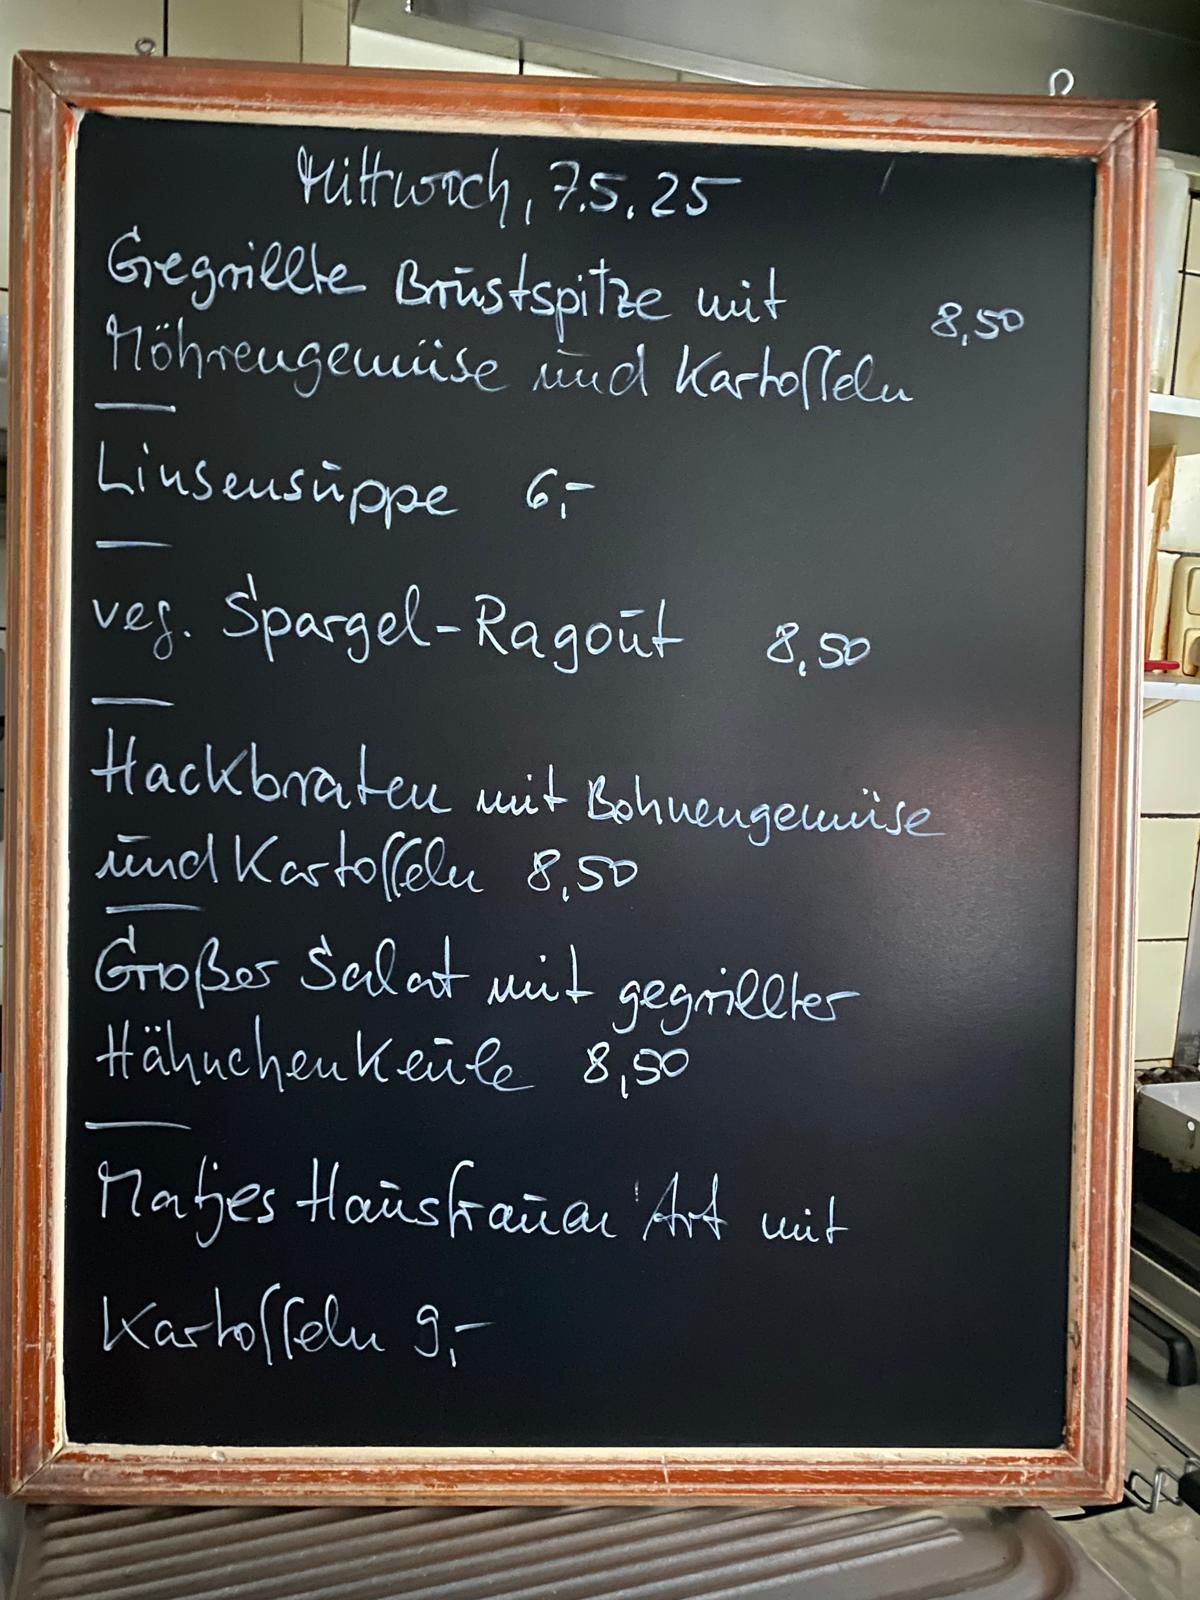 Mittwoch, 7.5.25
Gegrillte Brustspitze mit
8,50
Möhrengemüse und Kartoffeln
Linsensuppe 6,-
veg. Spargel-Ragout 8,50
Hackbraten mit Bohnengemüse
und Kartoffeln 8,50
Großer Salat mit gegrillter
Hähnchenkeule 8,50
Matjes Hausfrauen Art mit
Kartoffeln 9,-